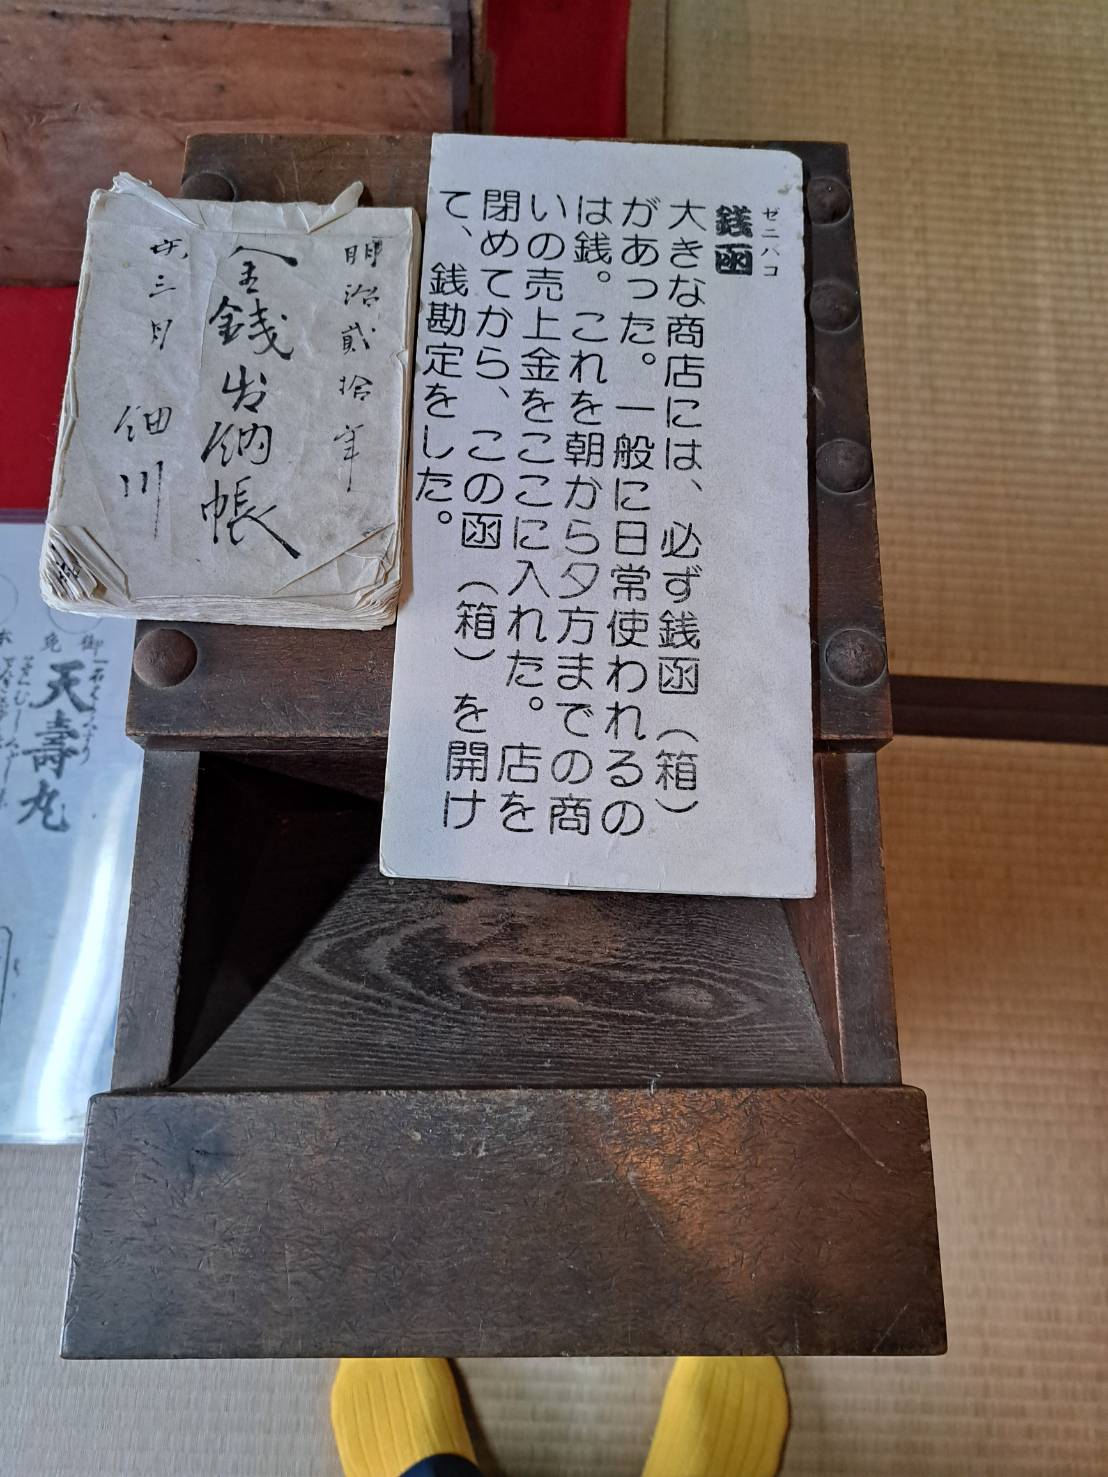 ゼニバコ
銭函
大きな商店には、必ず銭函（箱）
があった。一般に日常使われるの
は銭。これを朝から夕方までの商
いの売上金をここに入れた。店を
閉めてから、この函（箱）を開け
て、銭勘定をした。
明治貳拾年
金銭出納帳
三月
細川
御免
天壽丸